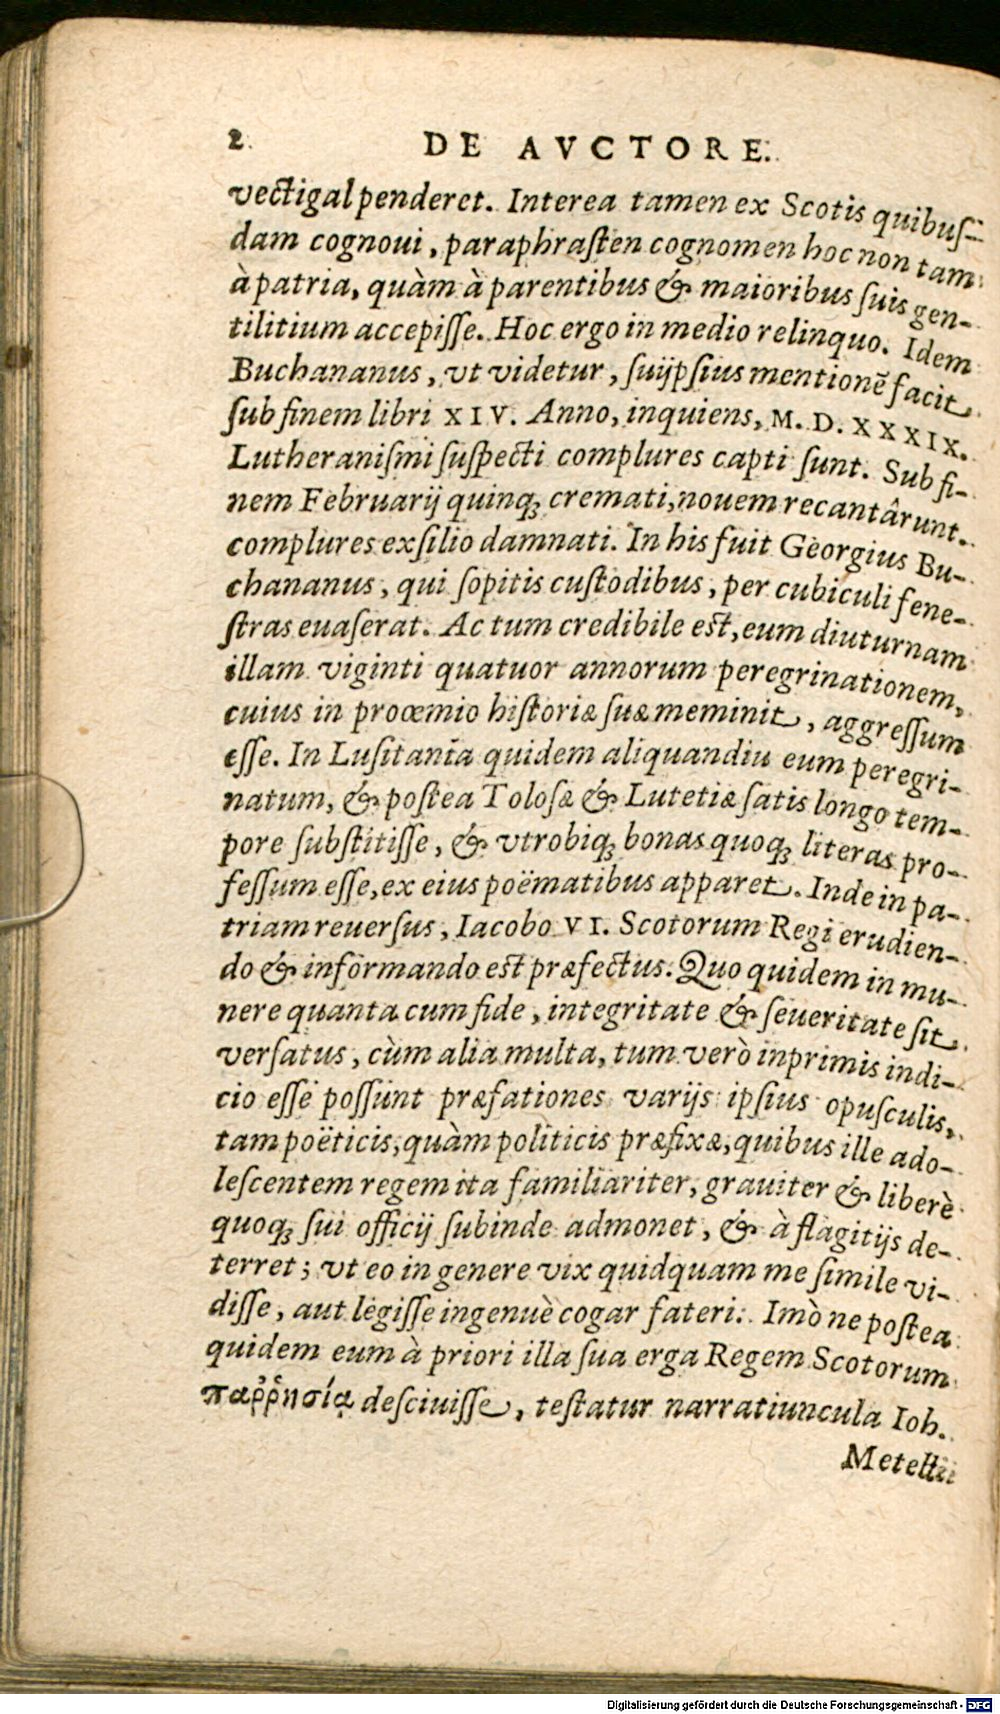 2. DE AVCTORE.
vectigal penderet. Interea tamen ex Scotis quibuſ-
dam cognoui, paraphraſten cognomen hoc non tam
à patria, quàm à parentibus & maioribus ſuis gen-
tilitium accepiſſe. Hoc ergo in medio relinquo. Idem
Buchananus, vt videtur, ſuijpſius mentionē facit
ſub finem libri XIV. Anno, inquiens, M. D. XXXIX.
Lutheraniſmi ſuſpecti complures capti ſunt. Sub fi-
nem Februarij quinq; cremati, nouem recantârunt.
complures exſilio damnati. In his fuit Georgius Bu-
chananus, qui ſopitis cuſtodibus, per cubiculi fene-
ſtras euaſerat. Ac tum credibile eſt, eum diuturnam
illam viginti quatuor annorum peregrinationem,
cuius in proœmio hiſtoriæ ſuæ meminit, aggreſſum
eſſe. In Luſitania quidem aliquandiu eum peregri-
natum, & poſtea Toloſæ & Lutetiæ ſatis longo tem-
pore ſubſtitiſſe, & vtrobiq; bonas quoq; literas pro-
feſſum eſſe, ex eius poëmatibus apparet. Inde in pa-
triam reuerſus, Iacobo VI. Scotorum Regi erudien-
do & informando eſt præfectus. Quo quidem in mu-
nere quanta cum fide, integritate & ſeueritate ſit
verſatus, cùm alia multa, tum verò inprimis indi-
cio eſſe poſſunt præfationes varijs ipſius opuſculis,
tam poëticis, quàm politicis præfixæ, quibus ille ado-
leſcentem regem ita familiariter, grauiter & liberè
quoq; ſui officij ſubinde admonet, & à flagitijs de-
terret; vt eo in genere vix quidquam me ſimile vi-
diſſe, aut legiſſe ingenuè cogar fateri. Imò ne poſtea
quidem eum à priori illa ſua erga Regem Scotorum
παῤῥησίᾳ deſciuiſſe, teſtatur narratiuncula Ioh.
Metelli
Digitalisierung gefördert durch die Deutsche Forschungsgemeinschaft - DFG